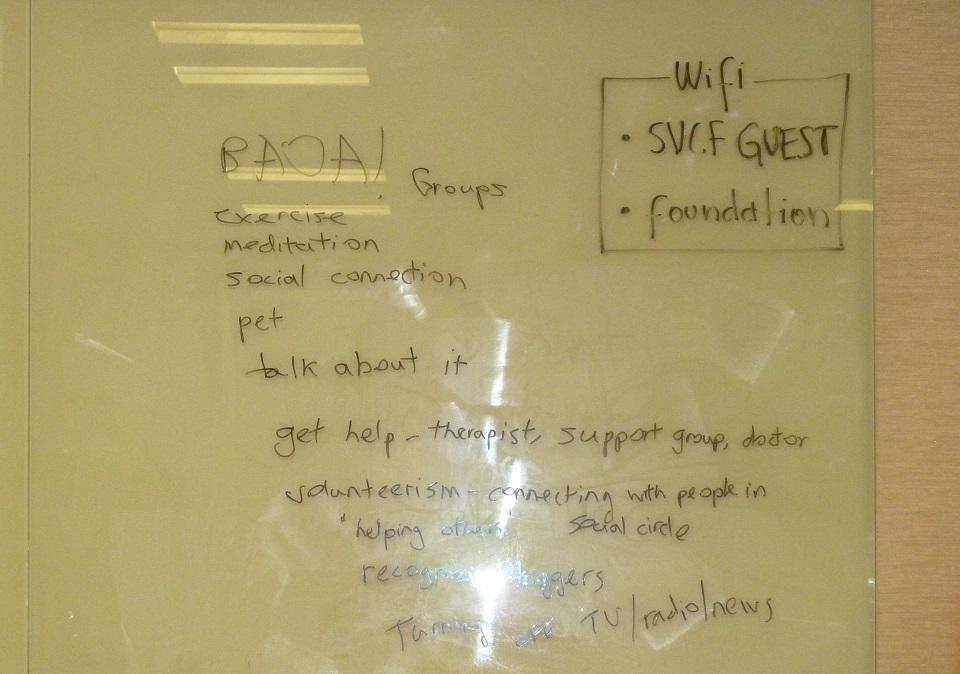 Wifi
• SVCF GUEST
• foundation
BAOA!
Groups
exercise
meditation
social connection
pet
talk about it
get help - therapist, support group, doctor
volunteerism - connecting with people in
"helping others" social circle
recognize triggers
Turning off TV/radio/news